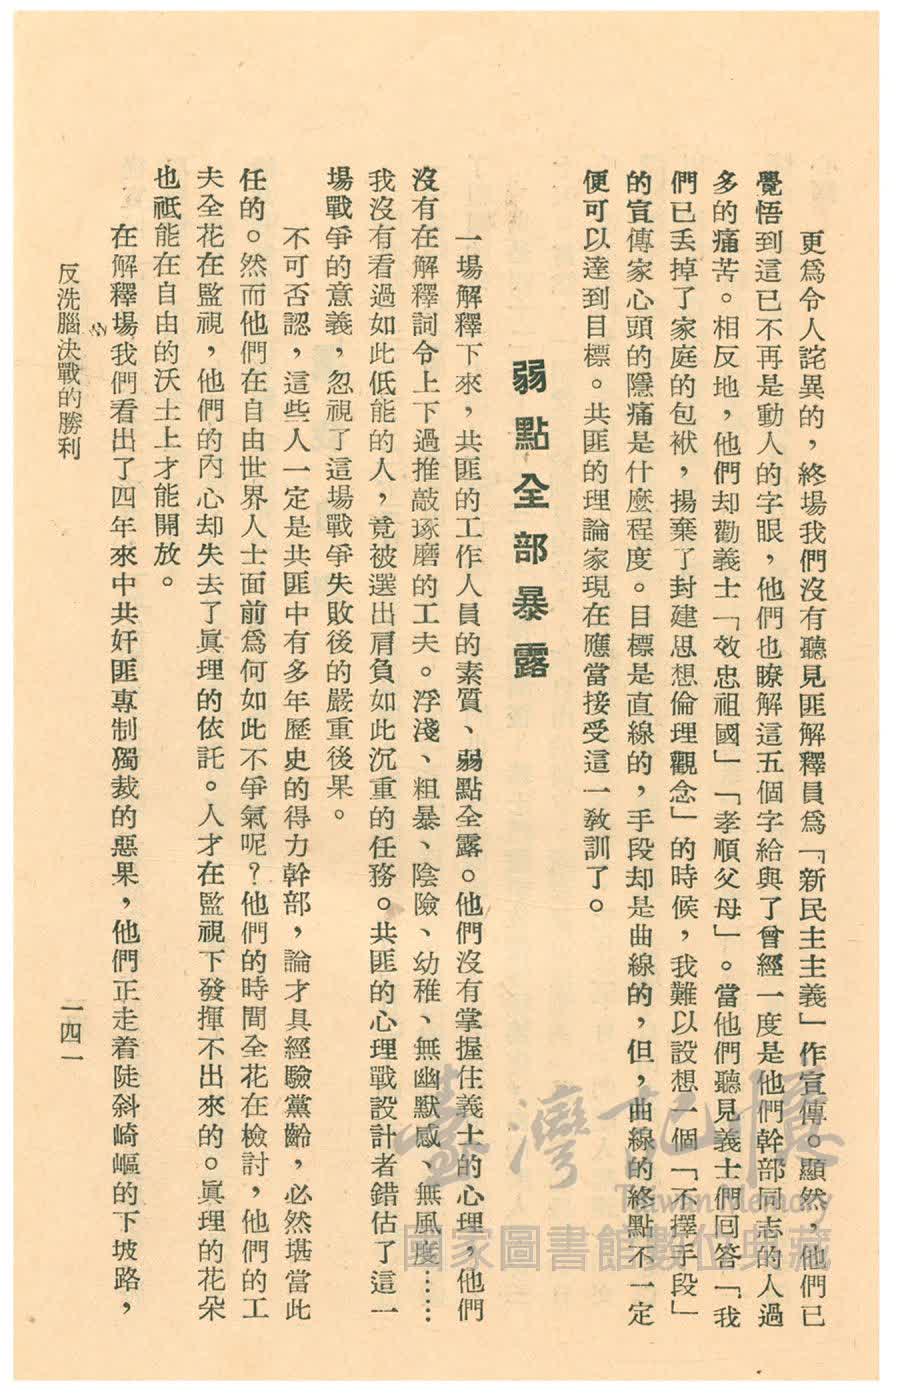 更爲令人詫異的，終場我們沒有聽見匪解釋員爲「新民主主義」作宣傳。顯然，他們已
覺悟到這已不再是動人的字眼，他們也瞭解這五個字給與了曾經一度是他們幹部同志的人過
多的痛苦。相反地，他們却勸義士「效忠祖國」「孝順父母」。當他們聽見義士們回答「我
們已丢掉了家庭的包袱，揚棄了封建思想倫理觀念」的時候，我難以設想一個「不擇手段」
的宣傳家心頭的隱痛是什麼程度。目標是直線的，手段却是曲線的，但，曲線的終點不一定
便可以達到目標。共匪的理論家現在應當接受這一敎訓了。
弱點全部暴露
一場解釋下來，共匪的工作人員的素質、弱點全露。他們沒有掌握住義士的心理，他們
沒有在解釋詞令上下過推敲琢磨的工夫。浮淺、粗暴、陰險、幼稚、無幽默感、無風度……
我沒有看過如此低能的人，竟被選出肩負如此沉重的任務。共匪的心理戰設計者錯估了這一
場戰爭的意義，忽視了這場戰爭失敗後的嚴重後果。
不可否認，這些人一定是共匪中有多年歷史的得力幹部，論才具經驗黨齡，必然堪當此
任的。然而他們在自由世界人士面前爲何如此不爭氣呢？他們的時間全花在檢討，他們的工
夫全花在監視，他們的內心却失去了眞理的依託。人才在監視下發揮不出來的。眞理的花朵
也祇能在自由的沃土上才能開放。
在解釋場我們看出了四年來中共奸匪專制獨裁的惡果，他們正走着陡斜崎嶇的下坡路，
反洗腦決戰的勝利
一四一
臺灣記憶
Taiwan Memory
國家圖書館數位典藏